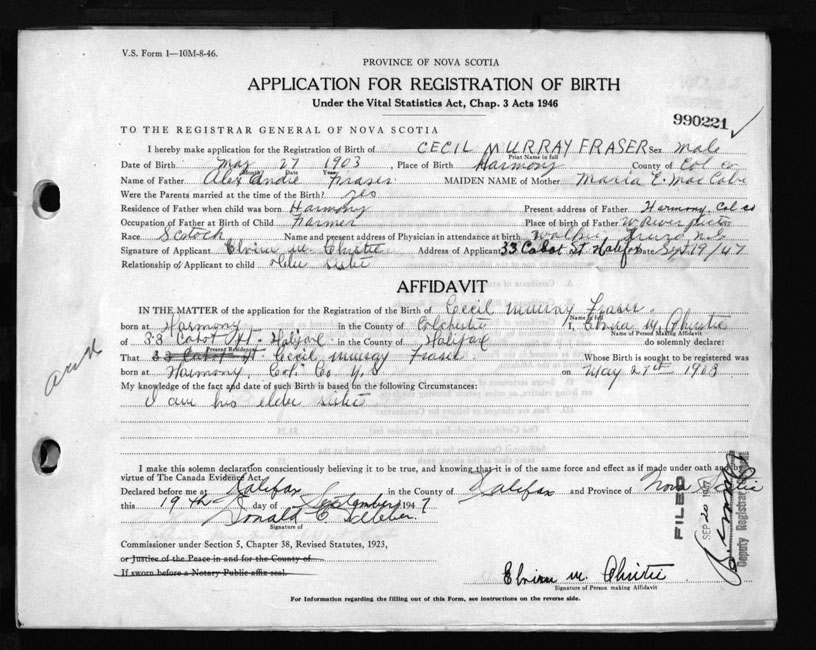 V.S. Form 1—10M-8-46.
PROVINCE OF NOVA SCOTIA
APPLICATION FOR REGISTRATION OF BIRTH
Under the Vital Statistics Act, Chap. 3 Acts 1946
990221 ✓
TO THE REGISTRAR GENERAL OF NOVA SCOTIA
I hereby make application for the Registration of Birth of CECIL MURRAY FRASER Sex male
Print Name in full
Date of Birth May 27 1903, Place of Birth Harmony County of Col co
Month Date Year
Name of Father Alexandre Fraser MAIDEN NAME of Mother Maria E. MacCabe
Were the Parents married at the time of the Birth? yes
Residence of Father when child was born Harmony Present address of Father Harmony, Col co
Occupation of Father at Birth of Child Farmer Place of birth of Father W River
Race Scotch Name and present address of Physician in attendance at birth Truro, N.S.
Signature of Applicant M. Christie Address of Applicant 33 Cabot St Halifax Date Sept 19/47
Relationship of Applicant to child elder sister
AFFIDAVIT
IN THE MATTER of the application for the Registration of the Birth of Cecil Murray Fraser.
Name in full
born at Harmony in the County of Colchester I, M. Christie
Name of Person Making Affidavit
of 33 Cabot St. Halifax in the County of Halifax do solemnly declare:
Present Residence
That 33 Cabot St Cecil Murray Fraser Whose Birth is sought to be registered was
born at Harmony, Col. Co N.S on May 27th 1903
My knowledge of the fact and date of such Birth is based on the following Circumstances:
I am his elder sister
I make this solemn declaration conscientiously believing it to be true, and knowing that it is of the same force and effect as if made under oath and by
virtue of The Canada Evidence Act.
Declared before me at Halifax in the County of Halifax and Province of Nova Scotia
this 19th day of September 1947
Donald C.
Signature of
Commissioner under Section 5, Chapter 38, Revised Statutes, 1923,
or Justice of the Peace in and for the County of
If sworn before a Notary Public affix seal.
M. Christie
Signature of Person making Affidavit
FILED
SEP 20 1947
Deputy Registrar
For Information regarding the filling out of this Form, see instructions on the reverse side.